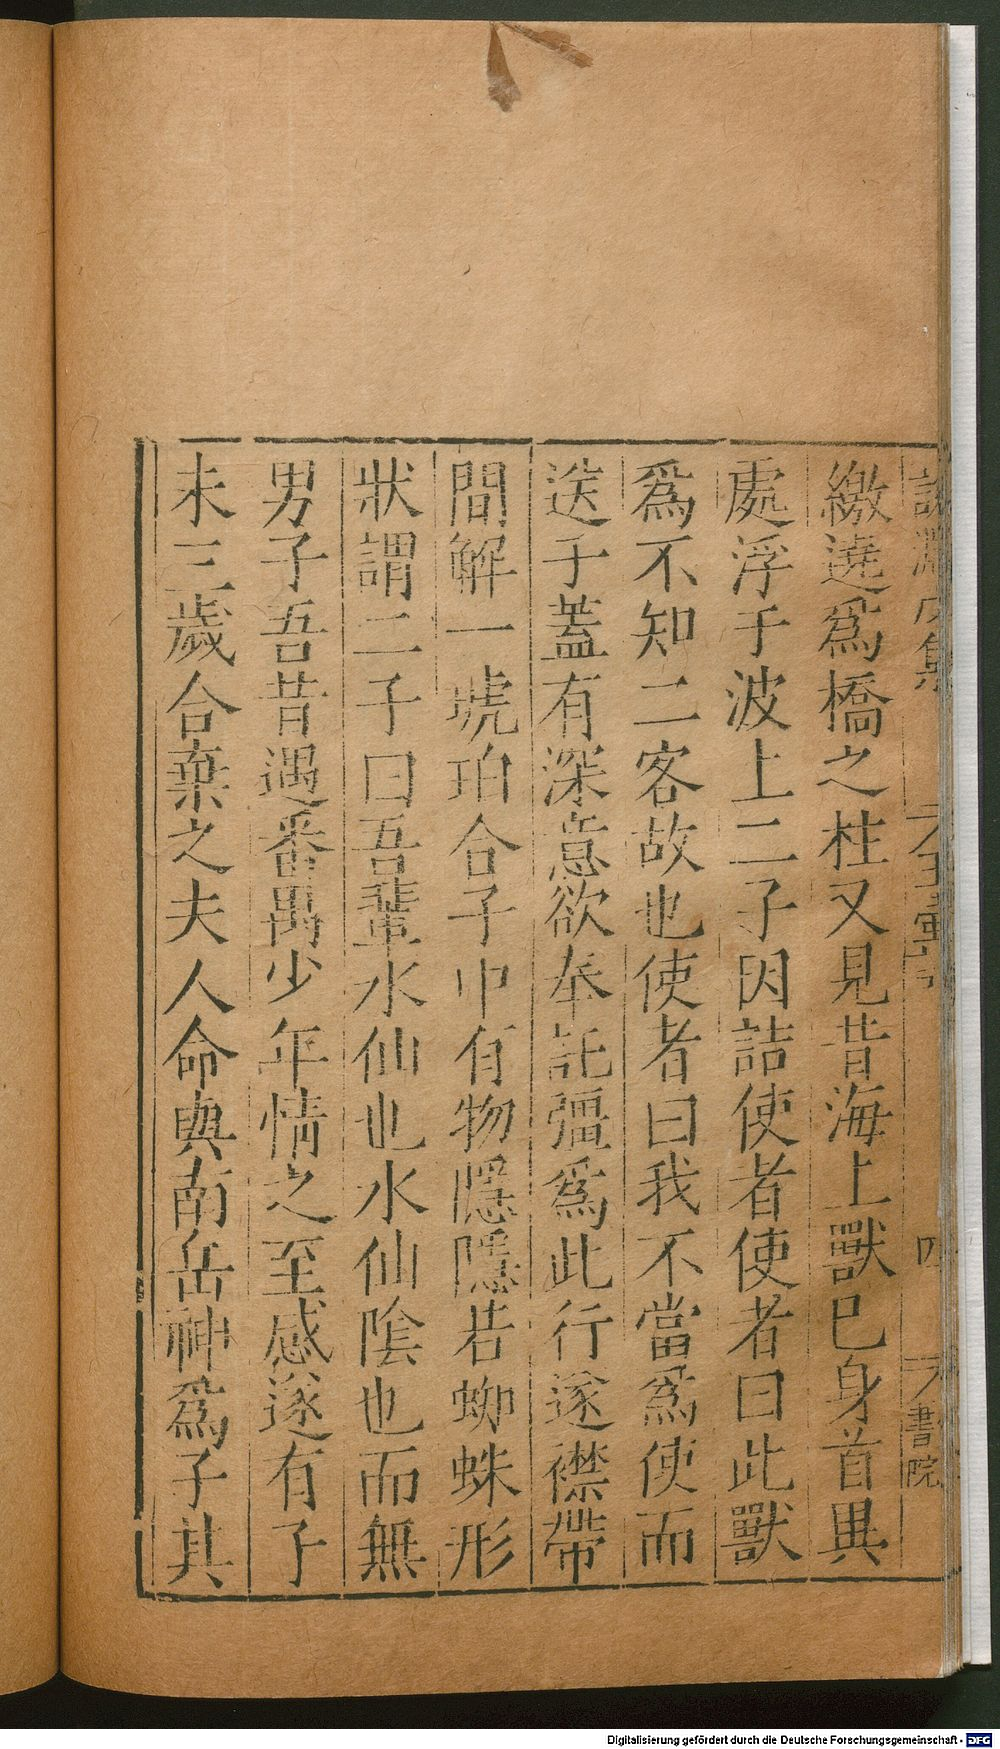 繳遶爲橋之柱又見昔海上獸巳身首異
處浮于波上二子因詰使者使者曰此獸
爲不知二客故也使者曰我不當爲使而
送子蓋有深意欲奉託彊爲此行遂襟帶
間解一琥珀合子中有物隱隱若蜘蛛形
狀謂二子曰吾輩水仙也水仙陰也而無
男子吾昔遇番禺少年情之至感遂有子
未三歲合棄之夫人命與南岳神爲子其
四
書院
Digitalisierung gefördert durch die Deutsche Forschungsgemeinschaft - DFG